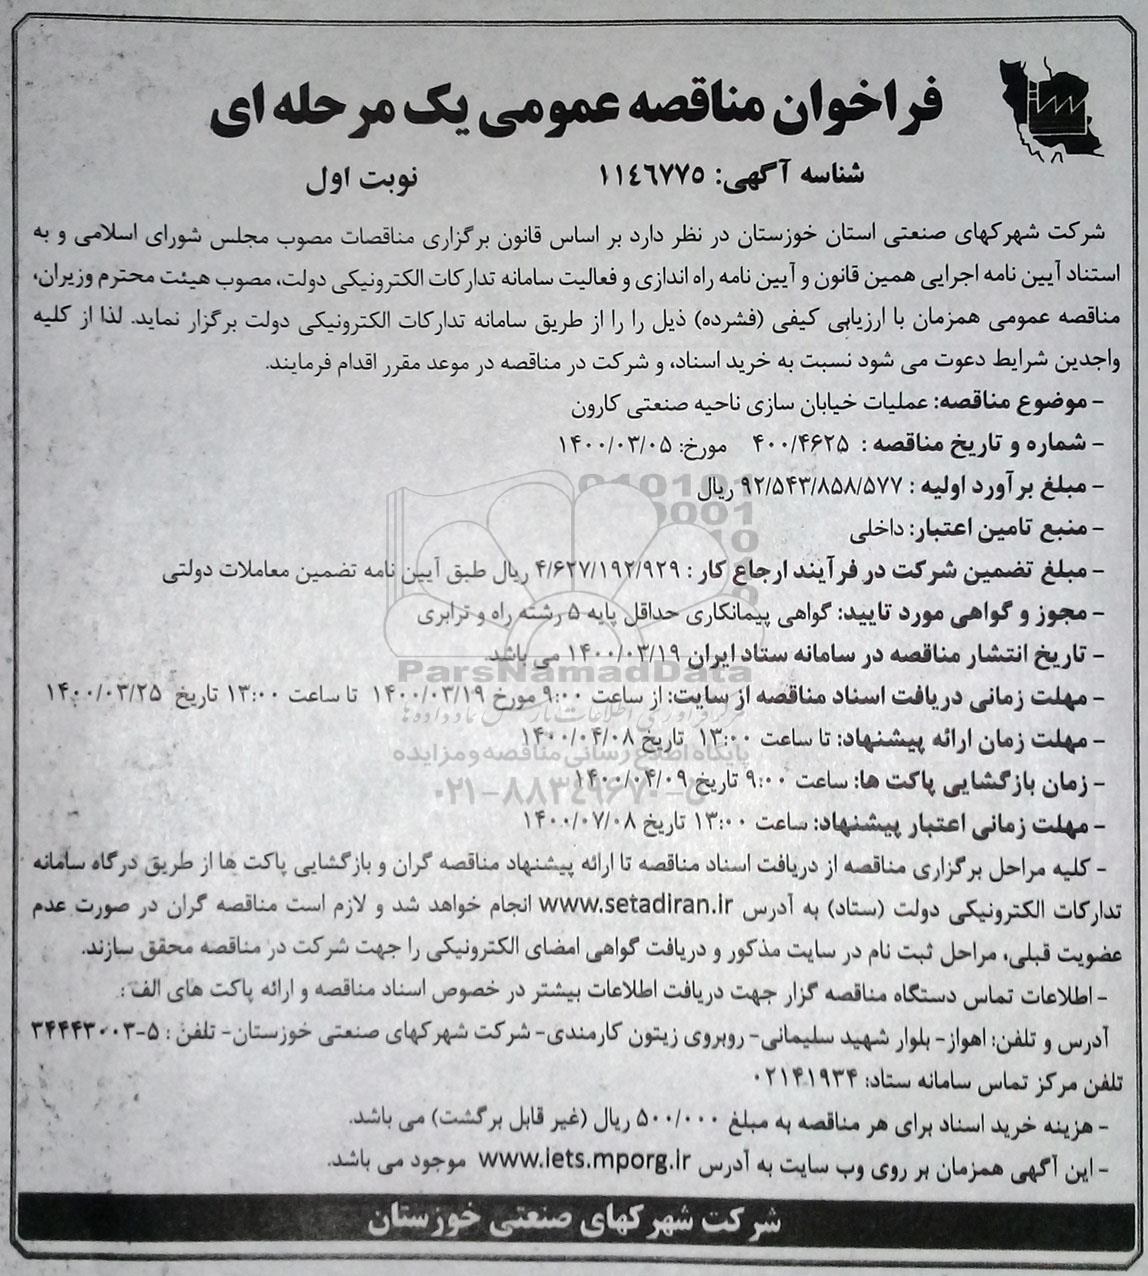 فراخوان مناقصه عمومی یک مرحله ای
شناسه آگهی: ۱۱۴۶۷۷۵ نوبت اول
شرکت شهرکهای صنعتی استان خوزستان در نظر دارد بر اساس قانون برگزاری مناقصات مصوب مجلس شورای اسلامی و به
استناد آیین نامه اجرایی همین قانون و آیین نامه راه اندازی و فعالیت سامانه تدارکات الکترونیکی دولت، مصوب هیئت محترم وزیران،
مناقصه عمومی همزمان با ارزیابی کیفی (فشرده) ذیل را را از طریق سامانه تدارکات الکترونیکی دولت برگزار نماید. لذا از کلیه
واجدین شرایط دعوت می شود نسبت به خرید اسناد، و شرکت در مناقصه در موعد مقرر اقدام فرمایند.
- موضوع مناقصه: عملیات خیابان سازی ناحیه صنعتی کارون
- شماره و تاریخ مناقصه : ۴۰۰/۴۶۲۵ مورخ: ۱۴۰۰/۰۳/۰۵
- مبلغ برآورد اولیه : ۹۲/۵۴۳/۸۵۸/۵۷۷ ریال
- منبع تامین اعتبار: داخلی
- مبلغ تضمین شرکت در فرآیند ارجاع کار : ۴/۶۲۷/۱۹۲/۹۲۹ ریال طبق آیین نامه تضمین معاملات دولتی
- مجوز و گواهی مورد تایید: گواهی پیمانکاری حداقل پایه ۵ رشته راه و ترابری
- تاریخ انتشار مناقصه در سامانه ستاد ایران ۱۴۰۰/۰۳/۱۹ می باشد.
- مهلت زمانی دریافت اسناد مناقصه از سایت: از ساعت ۹:۰۰ مورخ ۱۴۰۰/۰۳/۱۹ تا ساعت ۱۳:۰۰ تاریخ ۱۴۰۰/۰۳/۲۵
- مهلت زمان ارائه پیشنهاد: تا ساعت ۱۳:۰۰ تاریخ ۱۴۰۰/۰۴/۰۸
- زمان بازگشایی پاکت ها: ساعت ۹:۰۰ تاریخ ۱۴۰۰/۰۴/۰۹
- مهلت زمانی اعتبار پیشنهاد: ساعت ۱۳:۰۰ تاریخ ۱۴۰۰/۰۷/۰۸
- کلیه مراحل برگزاری مناقصه از دریافت اسناد مناقصه تا ارائه پیشنهاد مناقصه گران و بازگشایی پاکت ها از طریق درگاه سامانه
تدارکات الکترونیکی دولت (ستاد) به آدرس www.setadiran.ir انجام خواهد شد و لازم است مناقصه گران در صورت عدم
عضویت قبلی، مراحل ثبت نام در سایت مذکور و دریافت گواهی امضای الکترونیکی را جهت شرکت در مناقصه محقق سازند.
- اطلاعات تماس دستگاه مناقصه گزار جهت دریافت اطلاعات بیشتر در خصوص اسناد مناقصه و ارائه پاکت های الف :
آدرس و تلفن: اهواز- بلوار شهید سلیمانی- روبروی زیتون کارمندی- شرکت شهرکهای صنعتی خوزستان- تلفن : ۵-۳۴۴۴۳۰۰۳
تلفن مرکز تماس سامانه ستاد: ۰۲۱۴۱۹۳۴
- هزینه خرید اسناد برای هر مناقصه به مبلغ ۵۰۰/۰۰۰ ریال (غیر قابل برگشت) می باشد.
- این آگهی همزمان بر روی وب سایت به آدرس www.iets.mporg.ir موجود می باشد.
شرکت شهرکهای صنعتی خوزستان
ParsNamadData
پایگاه اطلاع رسانی مناقصه و مزایده
۰۲۱-۸۸۳۴۹۶۷۰-۵